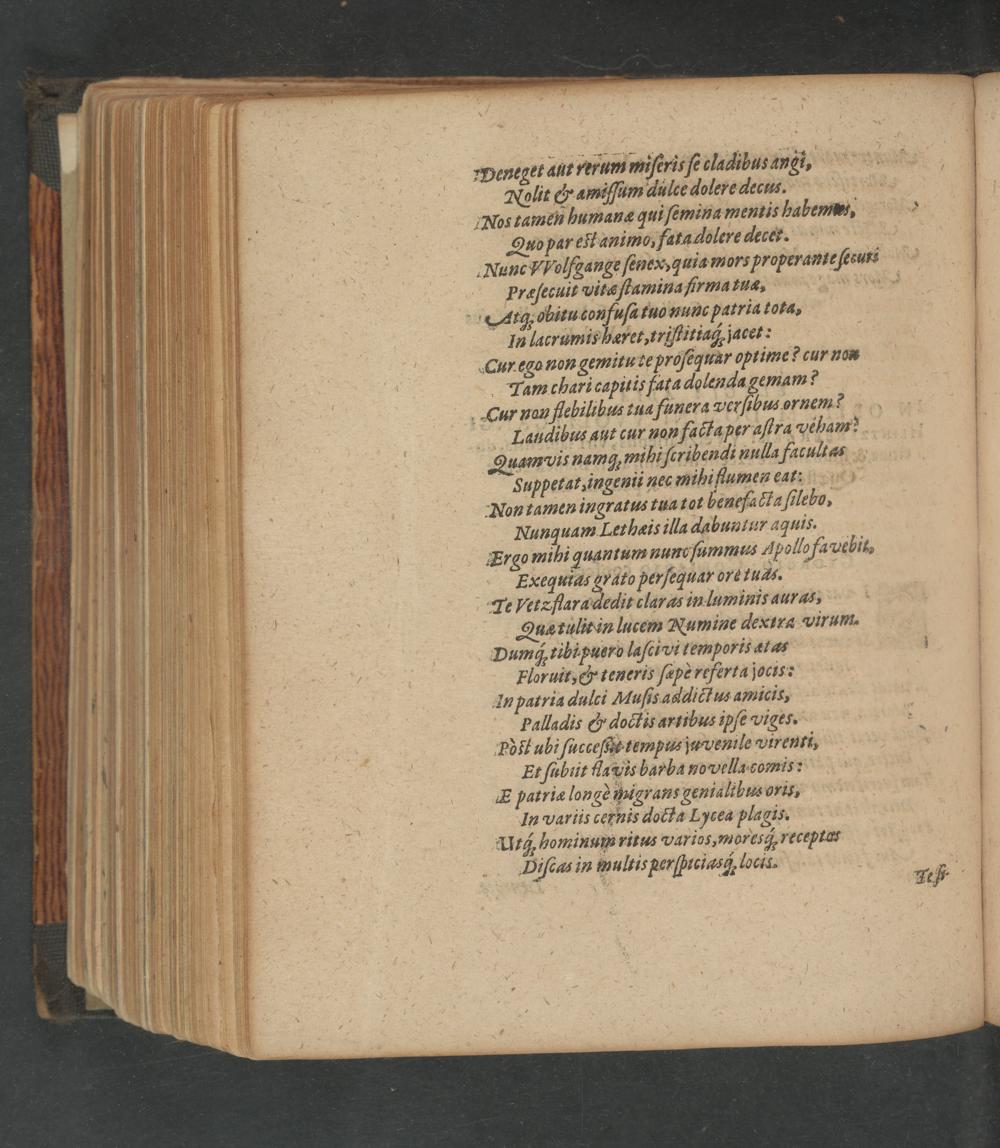 Deneget aut rerum miseris se cladibus angi,
Nolit & amissum dulce dolere decus.
Nos tamen humanæ qui semina mentis habemus,
Quo par est animo, fata dolere decet.
Nunc VVolfgange senex, quia mors properante securi
Præsecuit vitæ stamina firma tuæ,
Atq́; obitu confusa tuo nunc patria tota,
In lacrumis hæret, tristitiaq́; jacet:
Cur ego non gemitu te prosequar optime? cur non
Tam chari capitis fata dolenda gemam?
Cur non flebilibus tua funera versibus ornem?
Laudibus aut cur non facta per astra veham?
Quamvis namq; mihi scribendi nulla facultas
Suppetat, ingenii nec mihi flumen eat:
Non tamen ingratus tua tot benefacta silebo,
Nunquam Lethæis illa dabuntur aquis.
Ergo mihi quantum nunc summus Apollo favebit,
Exequias grato persequar ore tuas.
Te Vetzflara dedit claras in luminis auras,
Quæ tulit in lucem Numine dextra virum.
Dumq́; tibi puero lascivi temporis ætas
Floruit, & teneris sæpè referta jocis:
In patria dulci Musis addictus amicis,
Palladis & doctis artibus ipse viges.
Pòst ubi successit tempus juvenile virenti,
Et subiit flavis barba novella comis:
E patriæ longè migrans genialibus oris,
In variis cernis docta Lycea plagis.
Utq́; hominum ritus varios, moresq́; receptos
Discas in multis perspiciasq́; locis.
Te si-